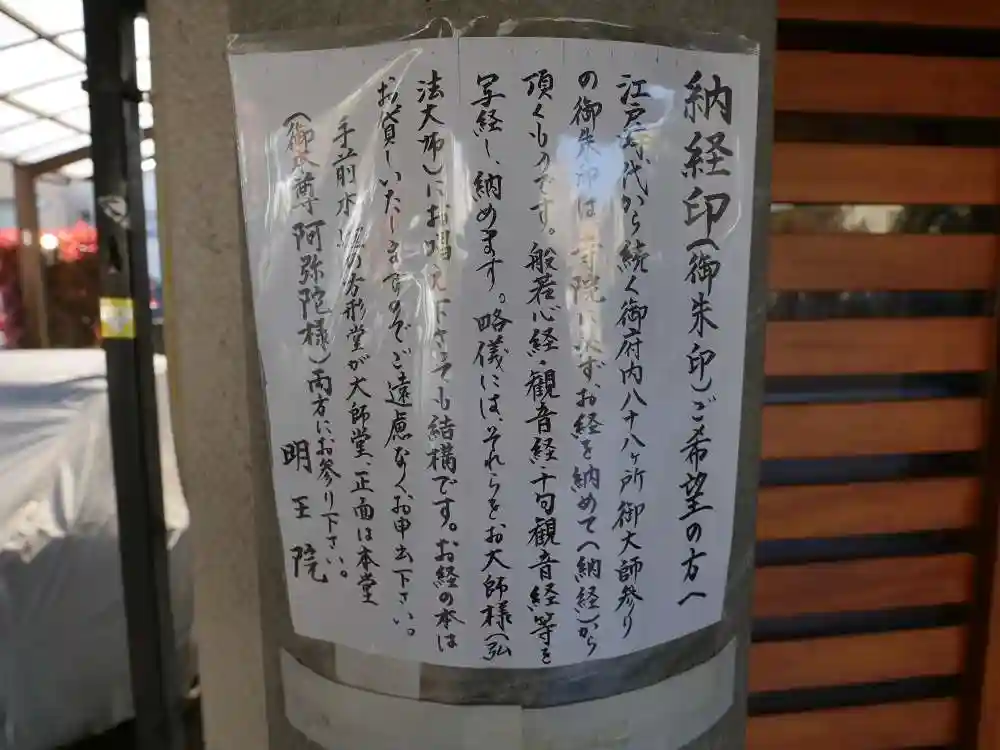 納経印(御朱印)ご希望の方へ
江戸時代から続く御府内八十八ヶ所御大師参り
の御朱印は寺院に必ず、お経を納めて(納経)から
頂くものです。般若心経・観音経・十句観音経等を
写経し、納めます。略儀にはそれらをお大師様(弘
法大師)にお唱え下さっても結構です。お経の本は
お貸しいたしますのでご遠慮なくお申出下さい。
手前水 の方形堂が大師堂、正面は本堂
(御本尊 阿弥陀様)両方にお参り下さい。
明王院